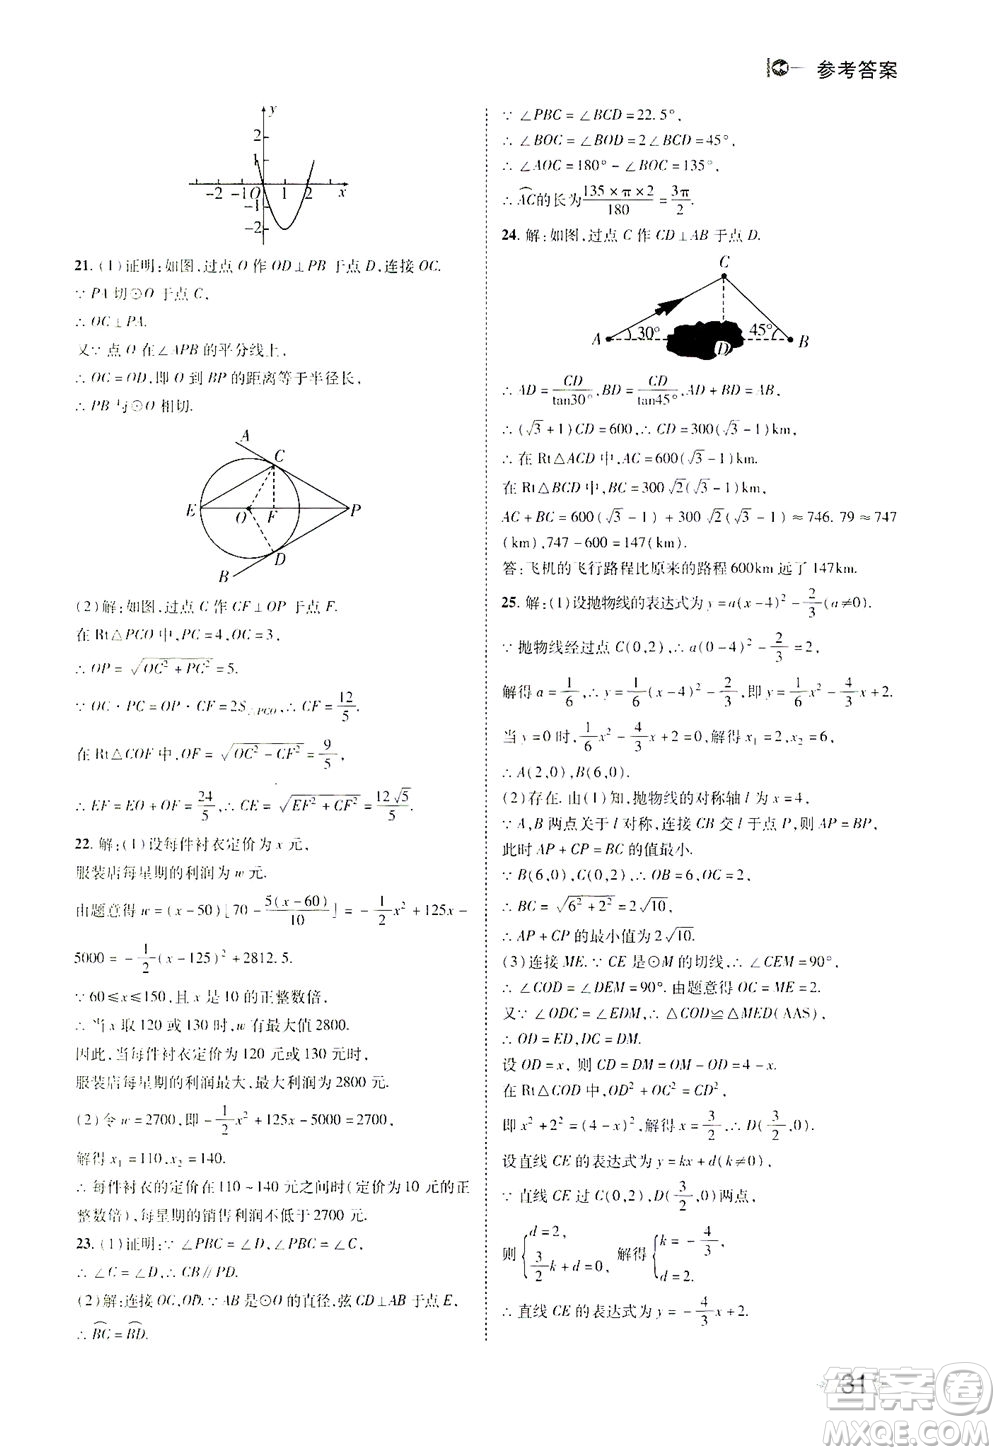 参考答案
y
2
1
-2 -1 O 1 2 x
-1
-2
21. (1)证明:如图,过点 O 作 OD⊥PB 于点 D,连接 OC.
∵ PA 切⊙O 于点 C,
∴ OC⊥PA.
又∵ 点 O 在∠APB 的平分线上,
∴ OC=OD,即 O 到 BP 的距离等于半径长,
∴ PB 与⊙O 相切.
A
C
E O F P
D
B
(2)解:如图,过点 C 作 CF⊥OP 于点 F.
在 Rt△PCO 中,PC=4,OC=3,
∴ OP=√(OC²+PC²)=5.
∵ OC·PC=OP·CF=2S△PCO,∴ CF=12/5.
在 Rt△COF 中,OF=√(OC²-CF²)=9/5,
∴ EF=EO+OF=24/5,∴ CE=√(EF²+CF²)=12√5/5.
22. 解:(1)设每件衬衣定价为 x 元,
服装店每星期的利润为 w 元.
由题意得 w=(x-50)[70-5(x-60)/10]=-1/2x²+125x-
5000=-1/2(x-125)²+2812.5.
∵ 60≤x≤150,且 x 是 10 的正整数倍,
∴ 当 x 取 120 或 130 时,w 有最大值 2800.
因此,当每件衬衣定价为 120 元或 130 元时,
服装店每星期的利润最大,最大利润为 2800 元.
(2)令 w=2700,即-1/2x²+125x-5000=2700,
解得 x₁=110,x₂=140.
∴ 每件衬衣的定价在 110~140 元之间时(定价为 10 元的正
整数倍),每星期的销售利润不低于 2700 元.
23. (1)证明:∵ ∠PBC=∠D,∠PBC=∠C,
∴ ∠C=∠D,∴ CB∥PD.
(2)解:连接 OC,OD.∵ AB 是⊙O 的直径,弦 CD⊥AB 于点 E,
∴ B͡C=B͡D.
∵ ∠PBC=∠BCD=22.5°,
∴ ∠BOC=∠BOD=2∠BCD=45°,
∴ ∠AOC=180°-∠BOC=135°,
∴ A͡C的长为(135×π×2)/180=3π/2.
24. 解:如图,过点 C 作 CD⊥AB 于点 D.
C
A 30° D 45° B
∴ AD=CD/tan30°,BD=CD/tan45°,AD+BD=AB,
∴ (√3+1)CD=600,∴ CD=300(√3-1)km,
∴ 在 Rt△ACD 中,AC=600(√3-1)km.
在 Rt△BCD 中,BC=300√2(√3-1)km,
AC+BC=600(√3-1)+300√2(√3-1)≈746.79≈747
(km),747-600=147(km).
答:飞机的飞行路程比原来的路程 600km 远了 147km.
25. 解:(1)设抛物线的表达式为 y=a(x-4)²-2/3(a≠0).
∵ 抛物线经过点 C(0,2),∴ a(0-4)²-2/3=2,
解得 a=1/6,∴ y=1/6(x-4)²-2/3,即 y=1/6x²-4/3x+2.
当 y=0 时,1/6x²-4/3x+2=0,解得 x₁=2,x₂=6,
∴ A(2,0),B(6,0).
(2)存在.由(1)知,抛物线的对称轴 l 为 x=4,
∵ A,B 两点关于 l 对称,连接 CB 交 l 于点 P,则 AP=BP,
此时 AP+CP=BC 的值最小.
∵ B(6,0),C(0,2),∴ OB=6,OC=2,
∴ BC=√(6²+2²)=2√10,
∴ AP+CP 的最小值为 2√10.
(3)连接 ME.∵ CE 是⊙M 的切线,∴ ∠CEM=90°,
∴ ∠COD=∠DEM=90°.由题意得 OC=ME=2.
又∵ ∠ODC=∠EDM,∴ △COD≌△MED(AAS),
∴ OD=ED,DC=DM.
设 OD=x,则 CD=DM=OM-OD=4-x.
在 Rt△COD 中,OD²+OC²=CD²,
即 x²+2²=(4-x)²,解得 x=3/2,∴ D(3/2,0).
设直线 CE 的表达式为 y=kx+d(k≠0),
∵ 直线 CE 过 C(0,2),D(3/2,0)两点,
则{d=2, 3/2k+d=0, 解得{k=-4/3, d=2.
∴ 直线 CE 的表达式为 y=-4/3x+2.
31
答案圈
MXQE.COM